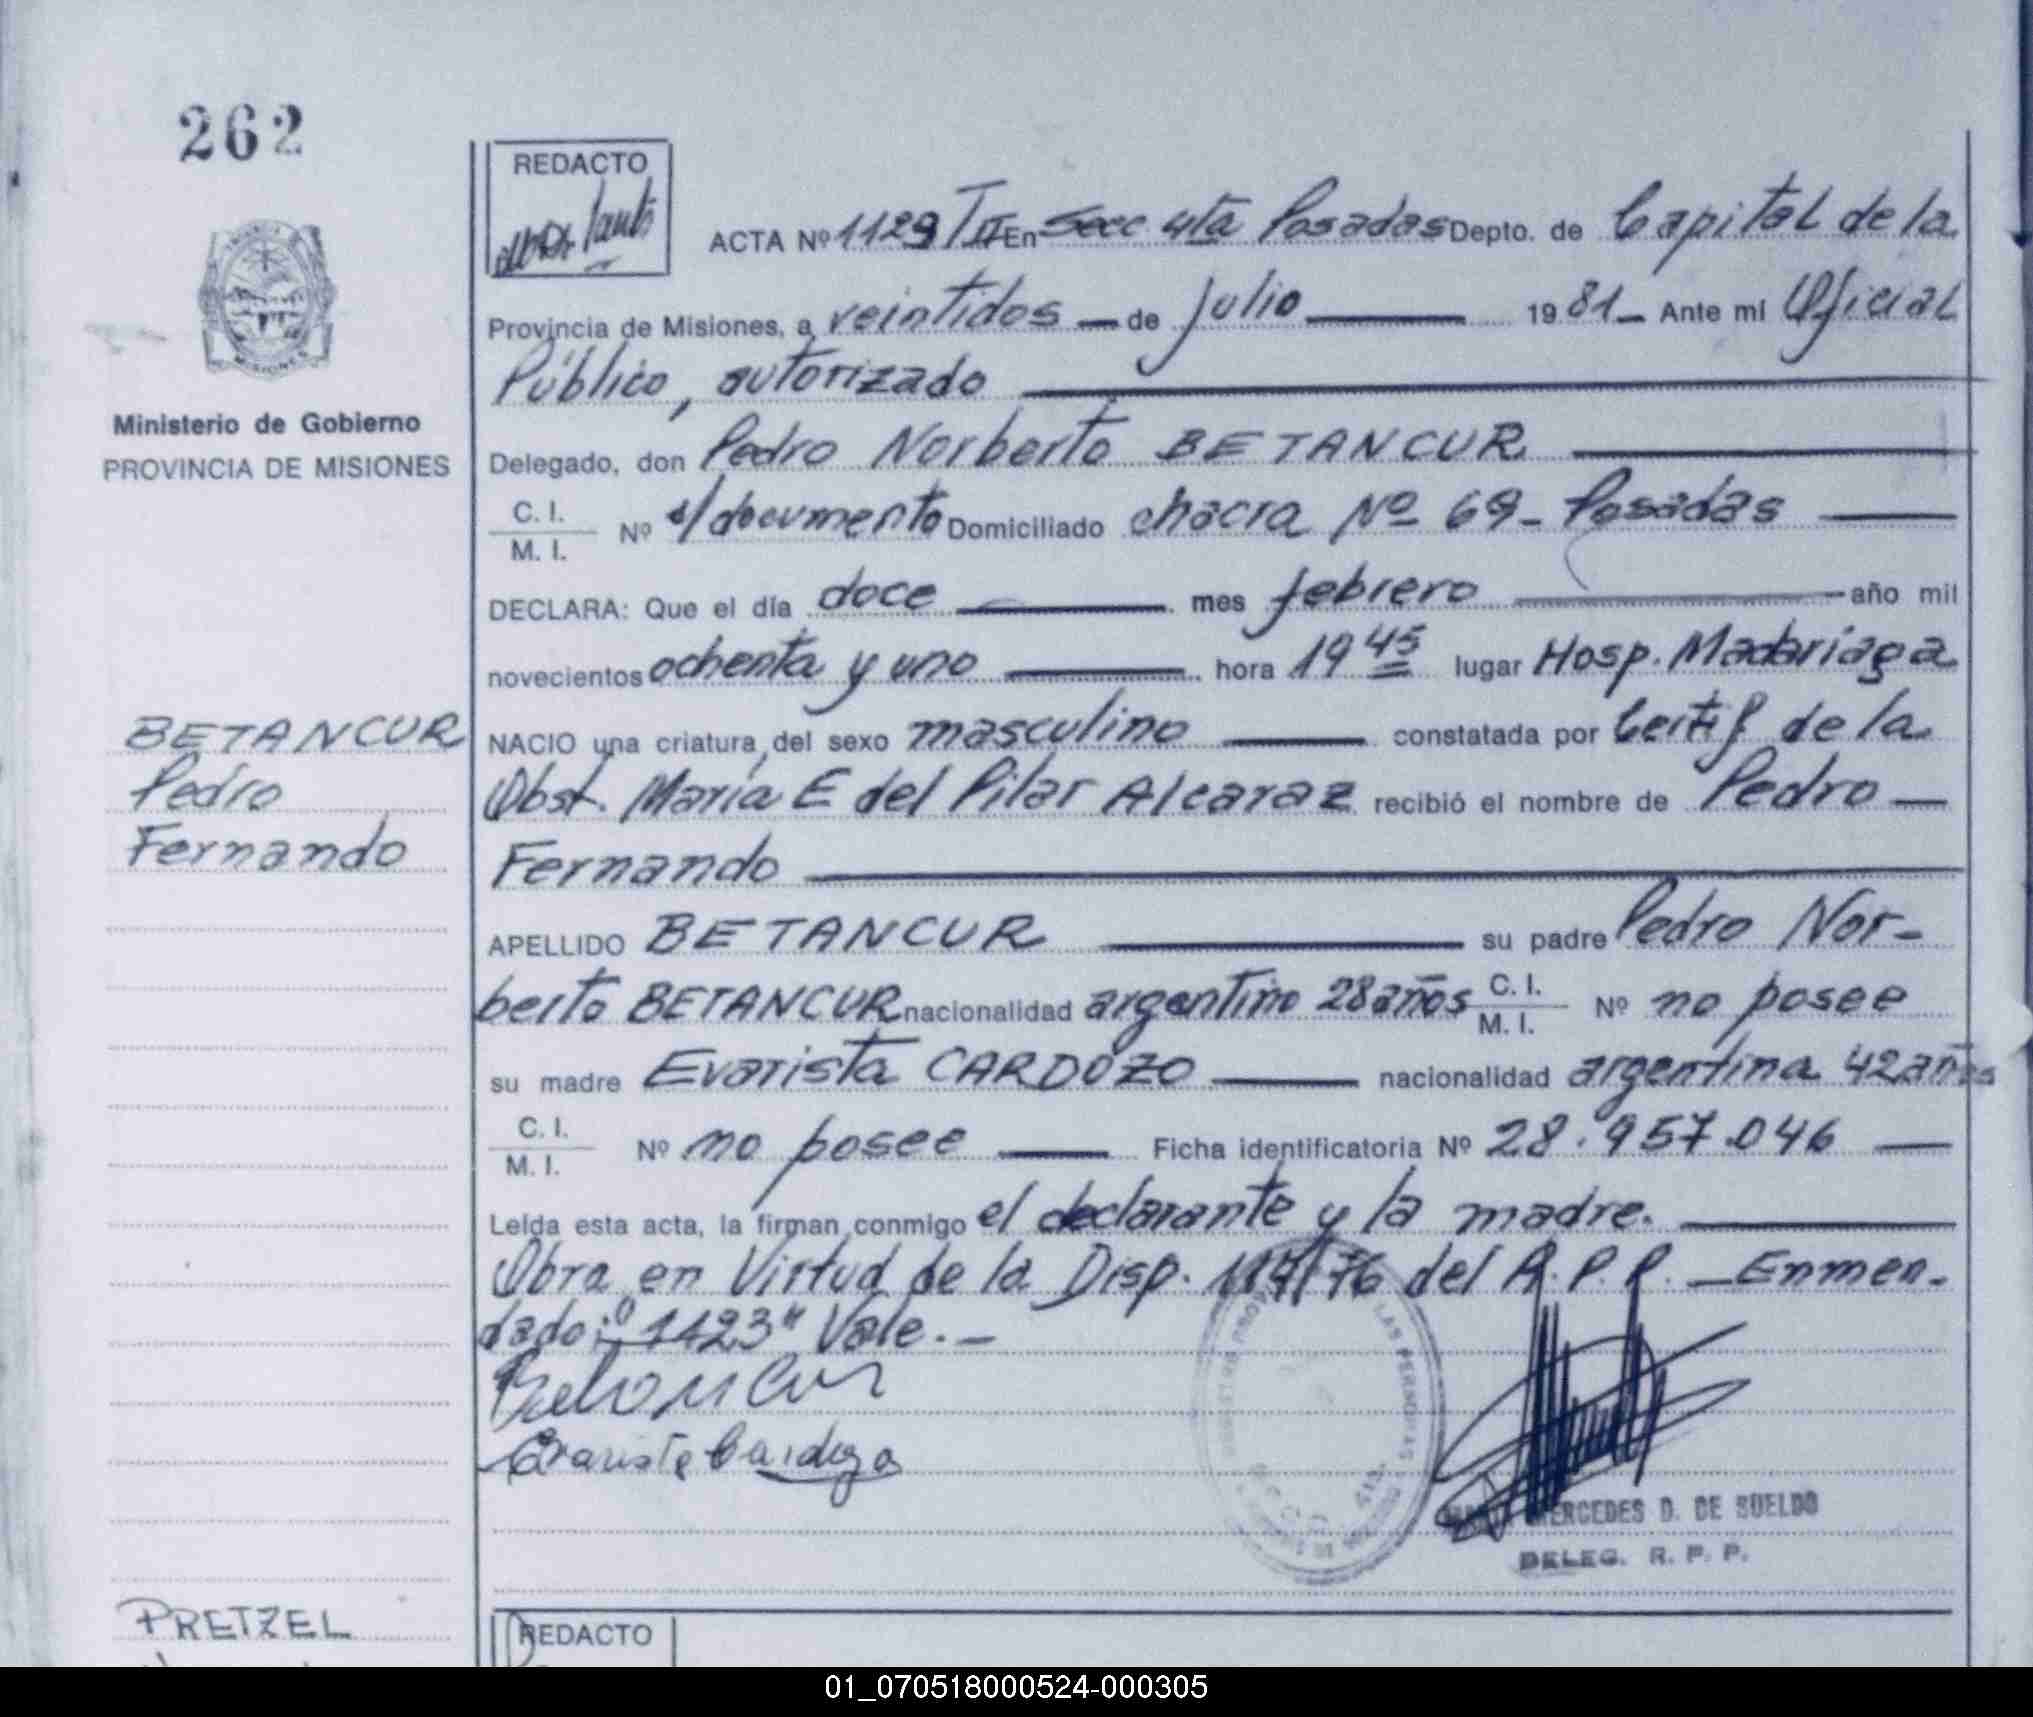 262
REDACTO
ACTA Nº 1129 TII En Secc 4ta Posadas Depto. de Capital de la
Provincia de Misiones, a veintidos — de julio — 1981 — Ante mi Oficial
Público, autorizado
Ministerio de Gobierno
PROVINCIA DE MISIONES
Delegado, don Pedro Norberto BETANCUR
C. I.
M. I.
Nº s/documento Domiciliado chacra Nº 69 - Posadas
DECLARA: Que el día doce mes febrero año mil
novecientos ochenta y uno hora 19 45 lugar Hosp. Madariaga
BETANCUR
Pedro
Fernando
NACIO una criatura del sexo masculino constatada por Certif de la
Obst. María E del Pilar Alcaraz recibió el nombre de Pedro —
Fernando
APELLIDO BETANCUR su padre Pedro Nor-
berto BETANCUR nacionalidad argentino 28 años C. I. M. I. Nº no posee
su madre Evarista CARDOZO nacionalidad argentina 42 años
C. I.
M. I.
Nº no posee Ficha identificatoria Nº 28.957.046
Leída esta acta, la firman conmigo el declarante y la madre.
Obra en Virtud de la Disp. /76 del R.P.P. — Enmen-
dado: "1123" Vale. —
Betancur
Evarista Cardozo
LAS PERSONAS
MERCEDES D. DE SUELDO
DELEG. R. P. P.
PRETZEL
REDACTO
01_070518000524-000305